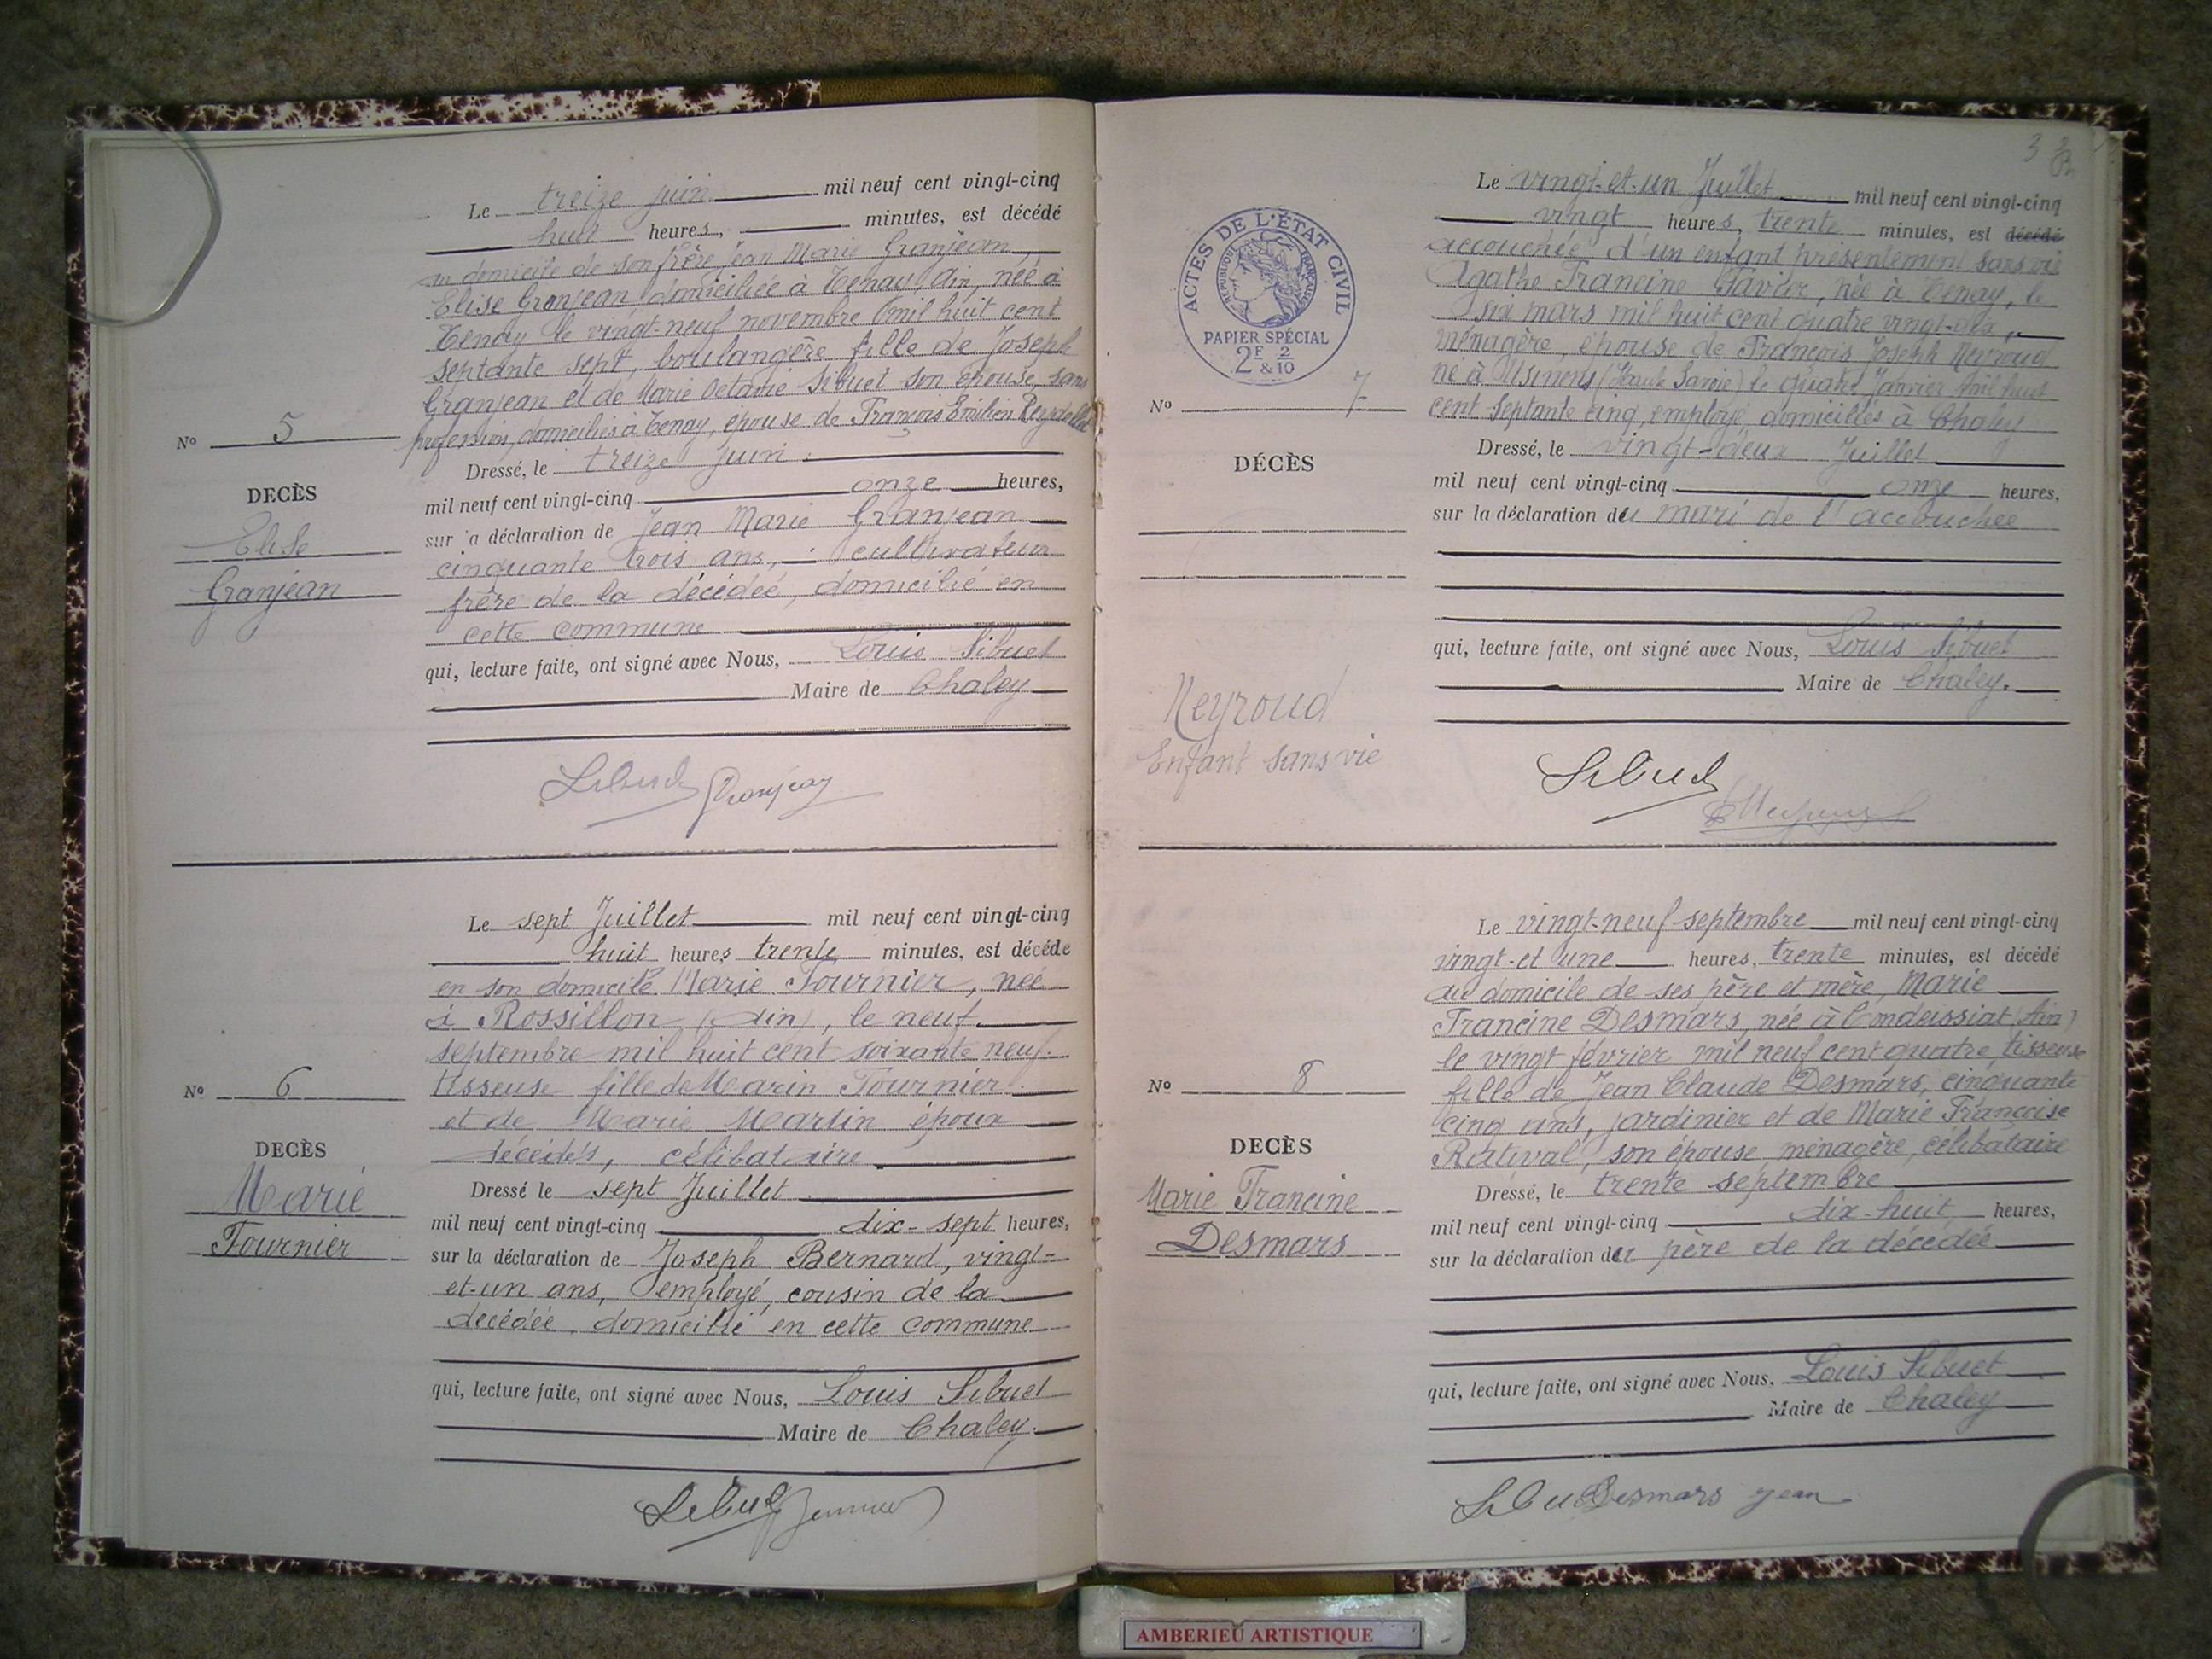 Le treize juin mil neuf cent vingt-cinq
huit heures, minutes, est décédé
au domicile de son frère Jean Marie Granjean
Elise Granjean domiciliée à Tenay, Ain, née à
Tenay le vingt-neuf novembre mil huit cent
septante sept, boulangère fille de Joseph
Granjean et de Marie Octavie Sibuet son épouse, sans
profession, domiciliés à Tenay, épouse de François Emilien Reydellet
No 5
DECÈS
Elise
Granjean
Dressé, le treize juin
mil neuf cent vingt-cinq onze heures,
sur la déclaration de Jean Marie Granjean
cinquante trois ans, cultivateur
frère de la décédée, domicilié en
cette commune
qui, lecture faite, ont signé avec Nous, Louis Sibuet
Maire de Chaley
Sibuet Granjean
Le sept Juillet mil neuf cent vingt-cinq
huit heures trente minutes, est décédé
en son domicile Marie Fournier, née
à Rossillon (Ain), le neuf
septembre mil huit cent soixante neuf
tisseuse fille de Marin Fournier
et de Marie Martin époux
décédés, célibataire
No 6
DECÈS
Marie
Fournier
Dressé le sept Juillet
mil neuf cent vingt-cinq dix-sept heures,
sur la déclaration de Joseph Bernard, vingt-
et-un ans, employé, cousin de la
décédée, domicilié en cette commune
qui, lecture faite, ont signé avec Nous, Louis Sibuet
Maire de Chaley.
Sibuet
3
Le vingt-et-un Juillet mil neuf cent vingt-cinq
vingt heures, trente minutes, est décédé
accouchée d'un enfant présentement sans vie
Agathe Francine Favier, née à Tenay, le
six mars mil huit cent quatre vingt-dix,
ménagère, épouse de François Joseph Neyroud
né à Usinens (Haute Savoie) le quatre Janvier mil huit
cent septante cinq, employé, domiciliés à Chaley
ACTES DE L'ÉTAT CIVIL
RÉPUBLIQUE FRANÇAISE
PAPIER SPÉCIAL
2F 2/10
&
No 7
DÉCÈS
Neyroud
Enfant sans vie
Dressé, le vingt-deux Juillet
mil neuf cent vingt-cinq onze heures,
sur la déclaration du mari de l'accouchée
qui, lecture faite, ont signé avec Nous, Louis Sibuet
Maire de Chaley.
Sibuet
Le vingt-neuf septembre mil neuf cent vingt-cinq
vingt-et une heures, trente minutes, est décédé
au domicile de ses père et mère, Marie
Francine Desmars, née à Condeissiat (Ain)
le vingt février mil neuf cent quatre, tisseuse
fille de Jean Claude Desmars, cinquante
cinq ans, jardinier et de Marie Françoise
Ratival, son épouse ménagère, célibataire
No 8
DECÈS
Marie Francine
Desmars
Dressé, le trente septembre
mil neuf cent vingt-cinq dix-huit heures,
sur la déclaration du père de la décédée
qui, lecture faite, ont signé avec Nous, Louis Sibuet
Maire de Chaley
Sibuet Desmars Jean
AMBERIEU ARTISTIQUE